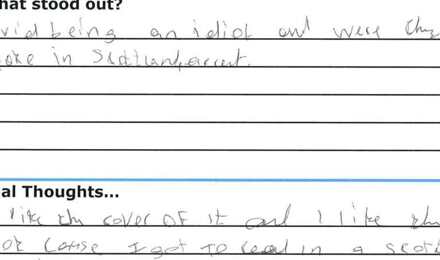 hat stood out?
vid being an idiot and were they
oke in Scottish accent.
al Thoughts...
like the cover of it and I like the
ok cause I got to read in a scot